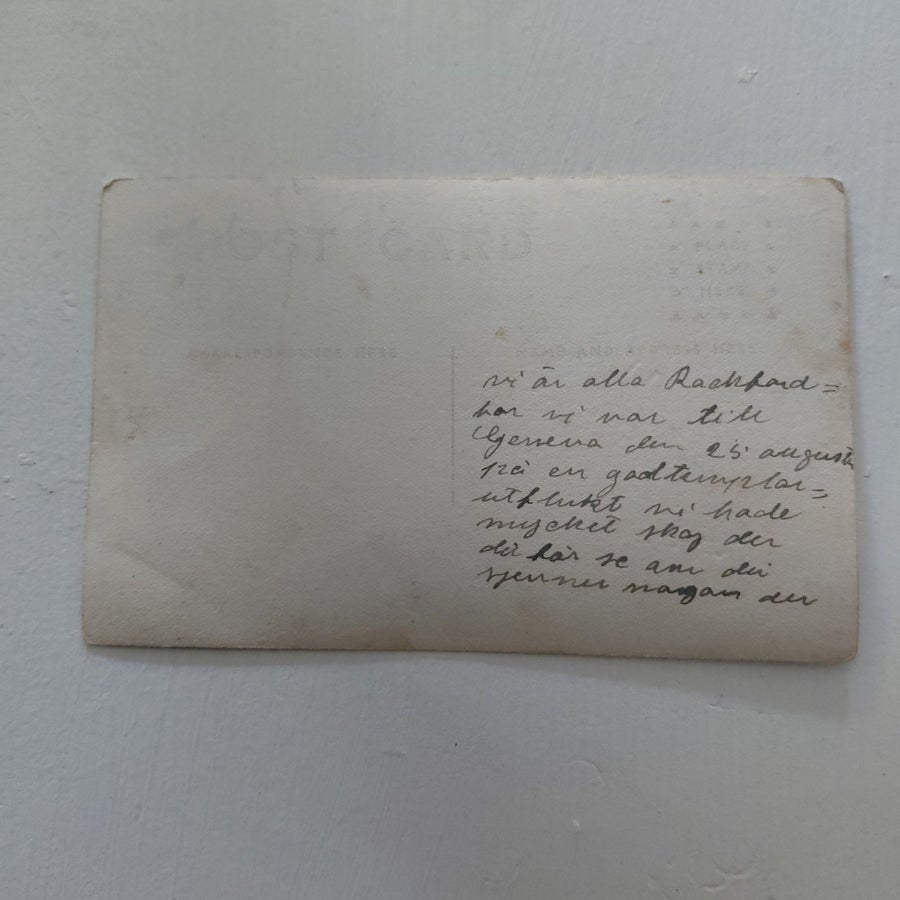 POST CARD
PLACE
STAMP
HERE
CORRESPONDENCE HERE
NAME AND ADDRESS HERE
vi är alla Rackford=
bor vi var till
Geneva den 25 augusti
på en godtemplar=
utflukt vi hade
mycket skoj der
du får se om du
kjenner nogon der